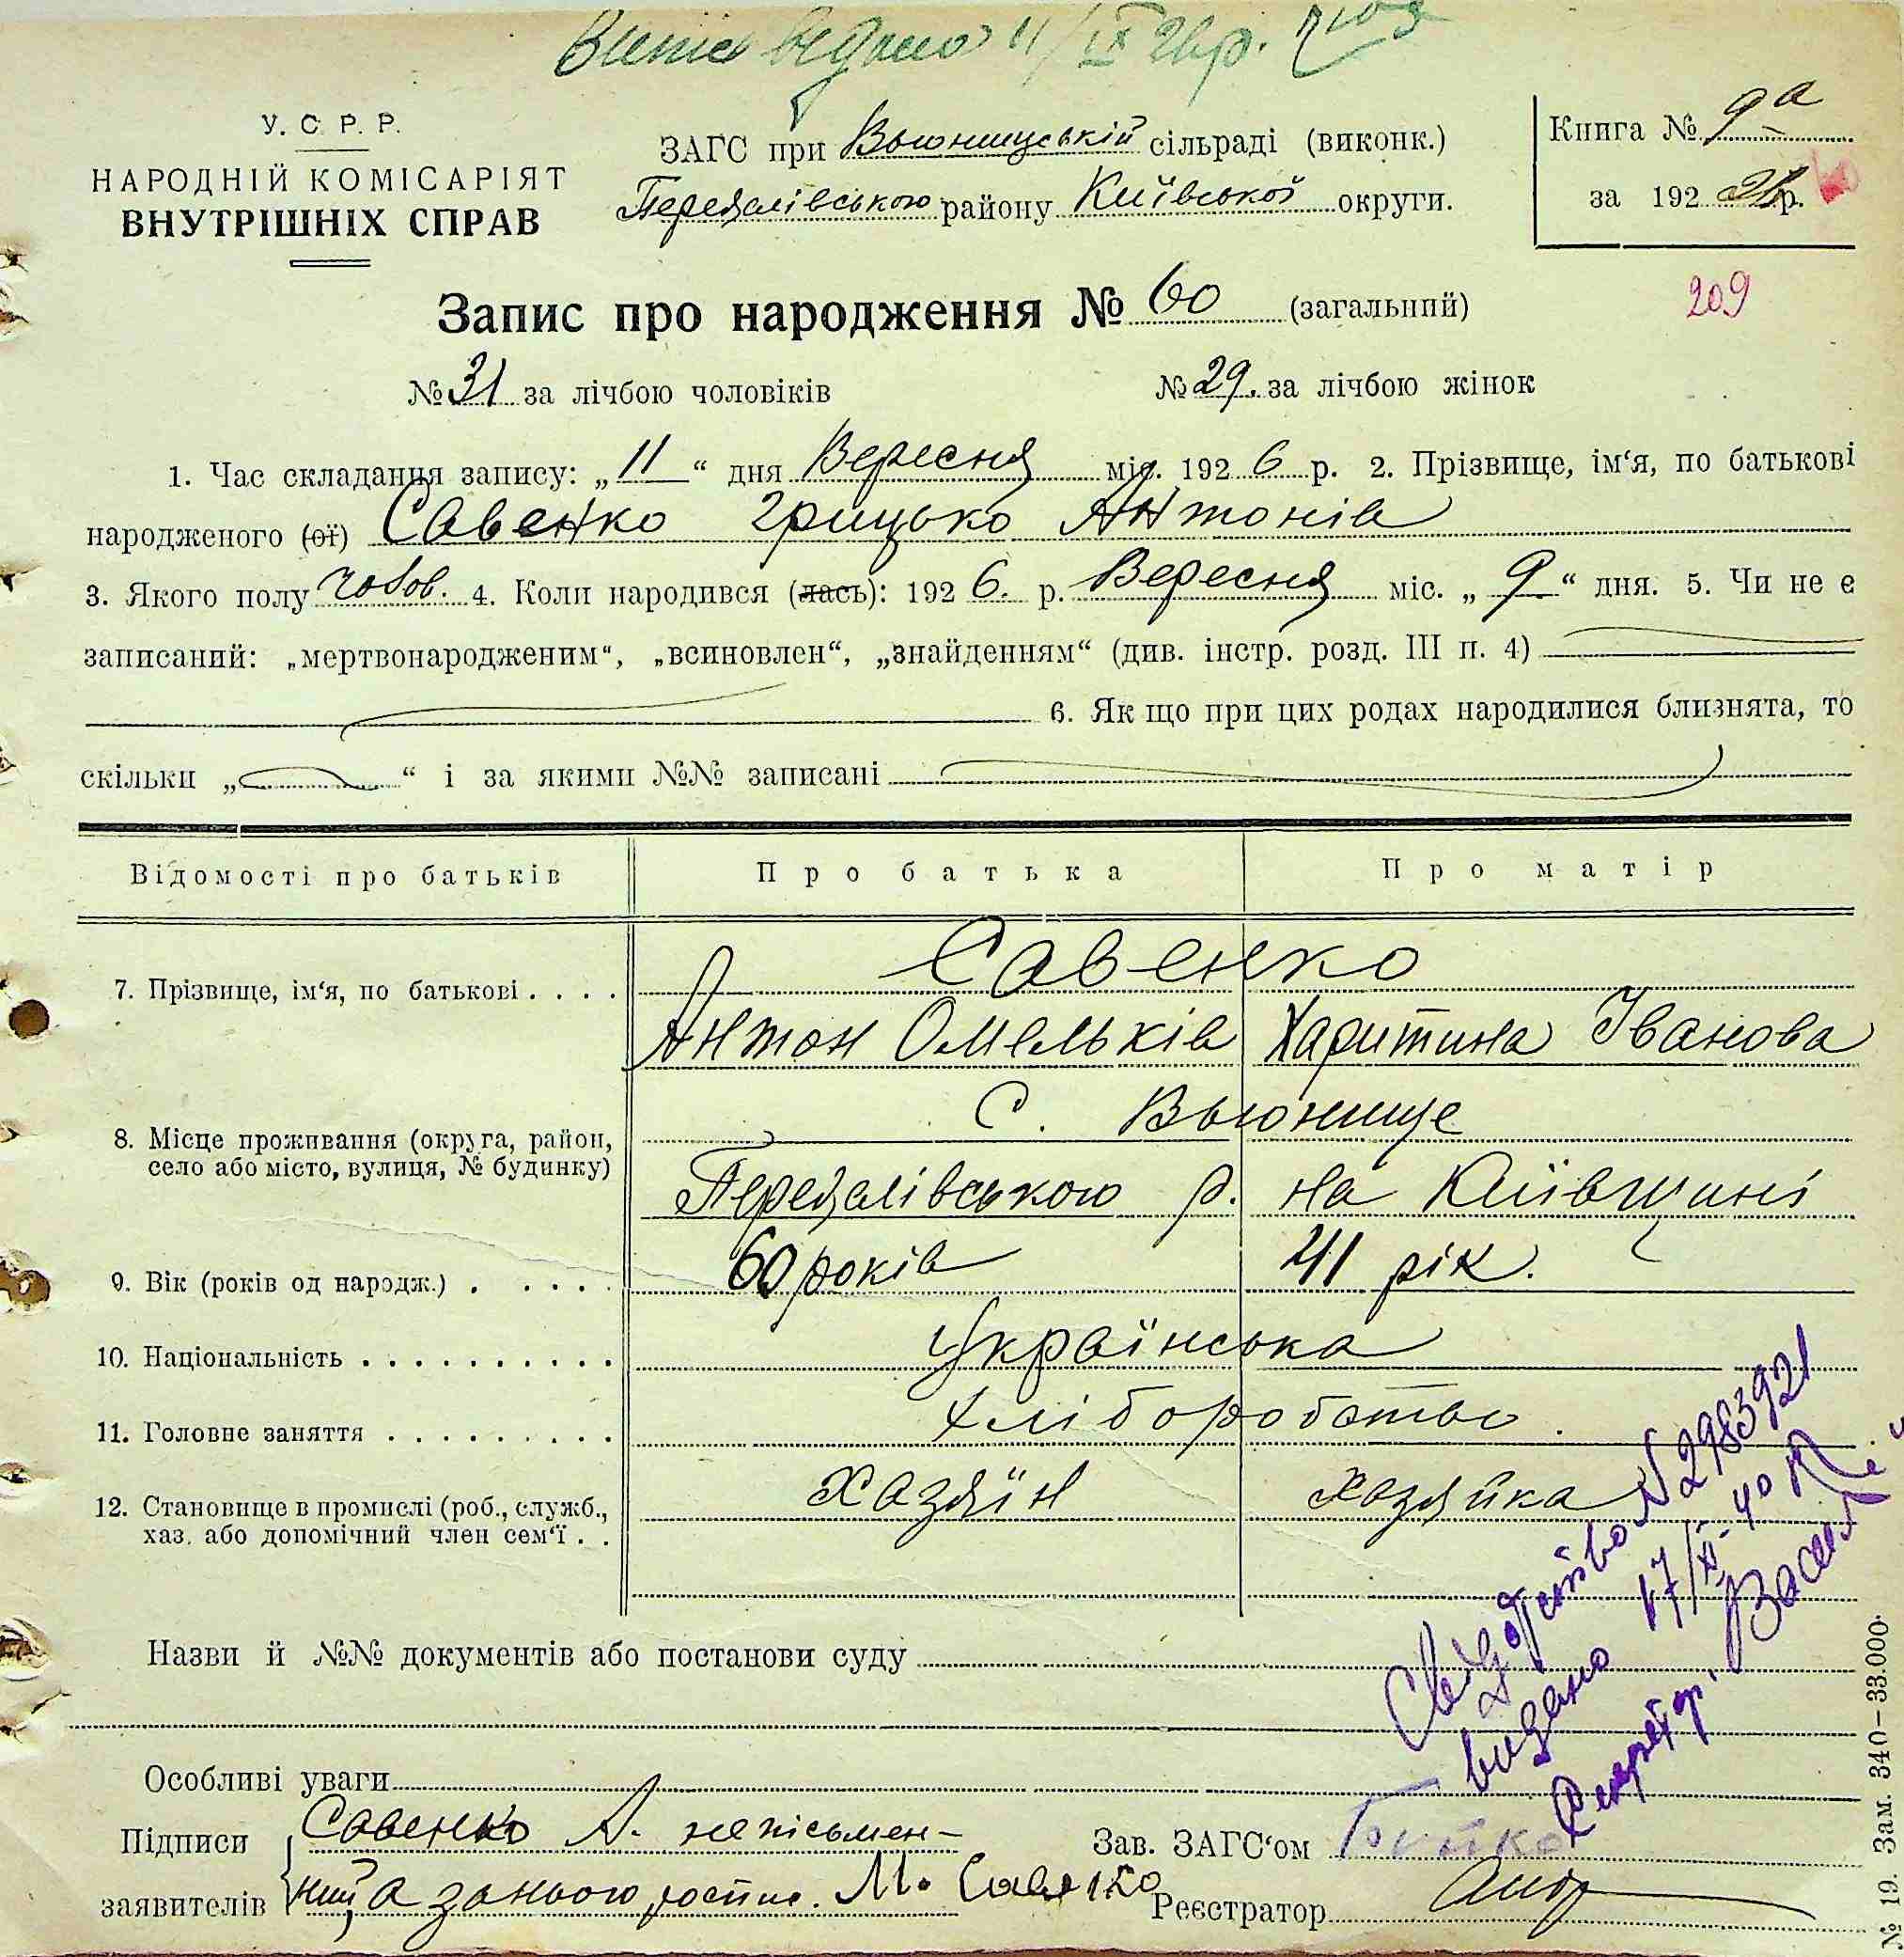 Випис видано 11/IX 26р.
У. С. Р. Р.
НАРОДНІЙ КОМІСАРІЯТ
ВНУТРІШНІХ СПРАВ
ЗАГС при Вьюницській сільраді (виконк.)
Переяслівського району Київської округи.
Книга № 9а
за 192 26 р.
209
Запис про народження № 60 (загальний)
№ 31 за лічбою чоловіків № 29. за лічбою жінок
1. Час складання запису: „11“ дня Вересня міс. 1926 р. 2. Прізвище, ім‘я, по батькові
народженого (ої) Савенко Грицько Антонів
3. Якого полу чолов. 4. Коли народився (лась): 1926. р. Вересня міс. „9“ дня. 5. Чи не є
записаний: „мертвонародженим“, „всиновлен“, „знайденням“ (див. інстр. розд. III п. 4)
6. Як що при цих родах народилися близнята, то
скільки „ “ і за якими №№ записані
Відомості про батьків Про батька Про матір
7. Прізвище, ім‘я, по батькові . . . . Савенко
Антон Омельків Харитина Іванова
8. Місце проживання (округа, район, село або місто, вулиця, № будинку) С. Вьюнище
Переяслівського р. на Київщині
9. Вік (років од народж.) . . . . . 60 років 41 рік.
10. Національність . . . . . . . . . . . Українська
11. Головне заняття . . . . . . . . . . Хліборобство.
12. Становище в промислі (роб., служб., хаз. або допомічний член сем‘ї . . Хазяїн хазяйка
Свидоцтво № 2983921
видано 17/XI-40 р.
Секретар
Назви й №№ документів або постанови суду
Особливі уваги
Підписи заявителів
Савенко А. неписьмен-
ний, а за нього роспис. М. Савенко
Зав. ЗАГС‘ом Бойко
Реєстратор
№ 19. Зам. 340–33.000.